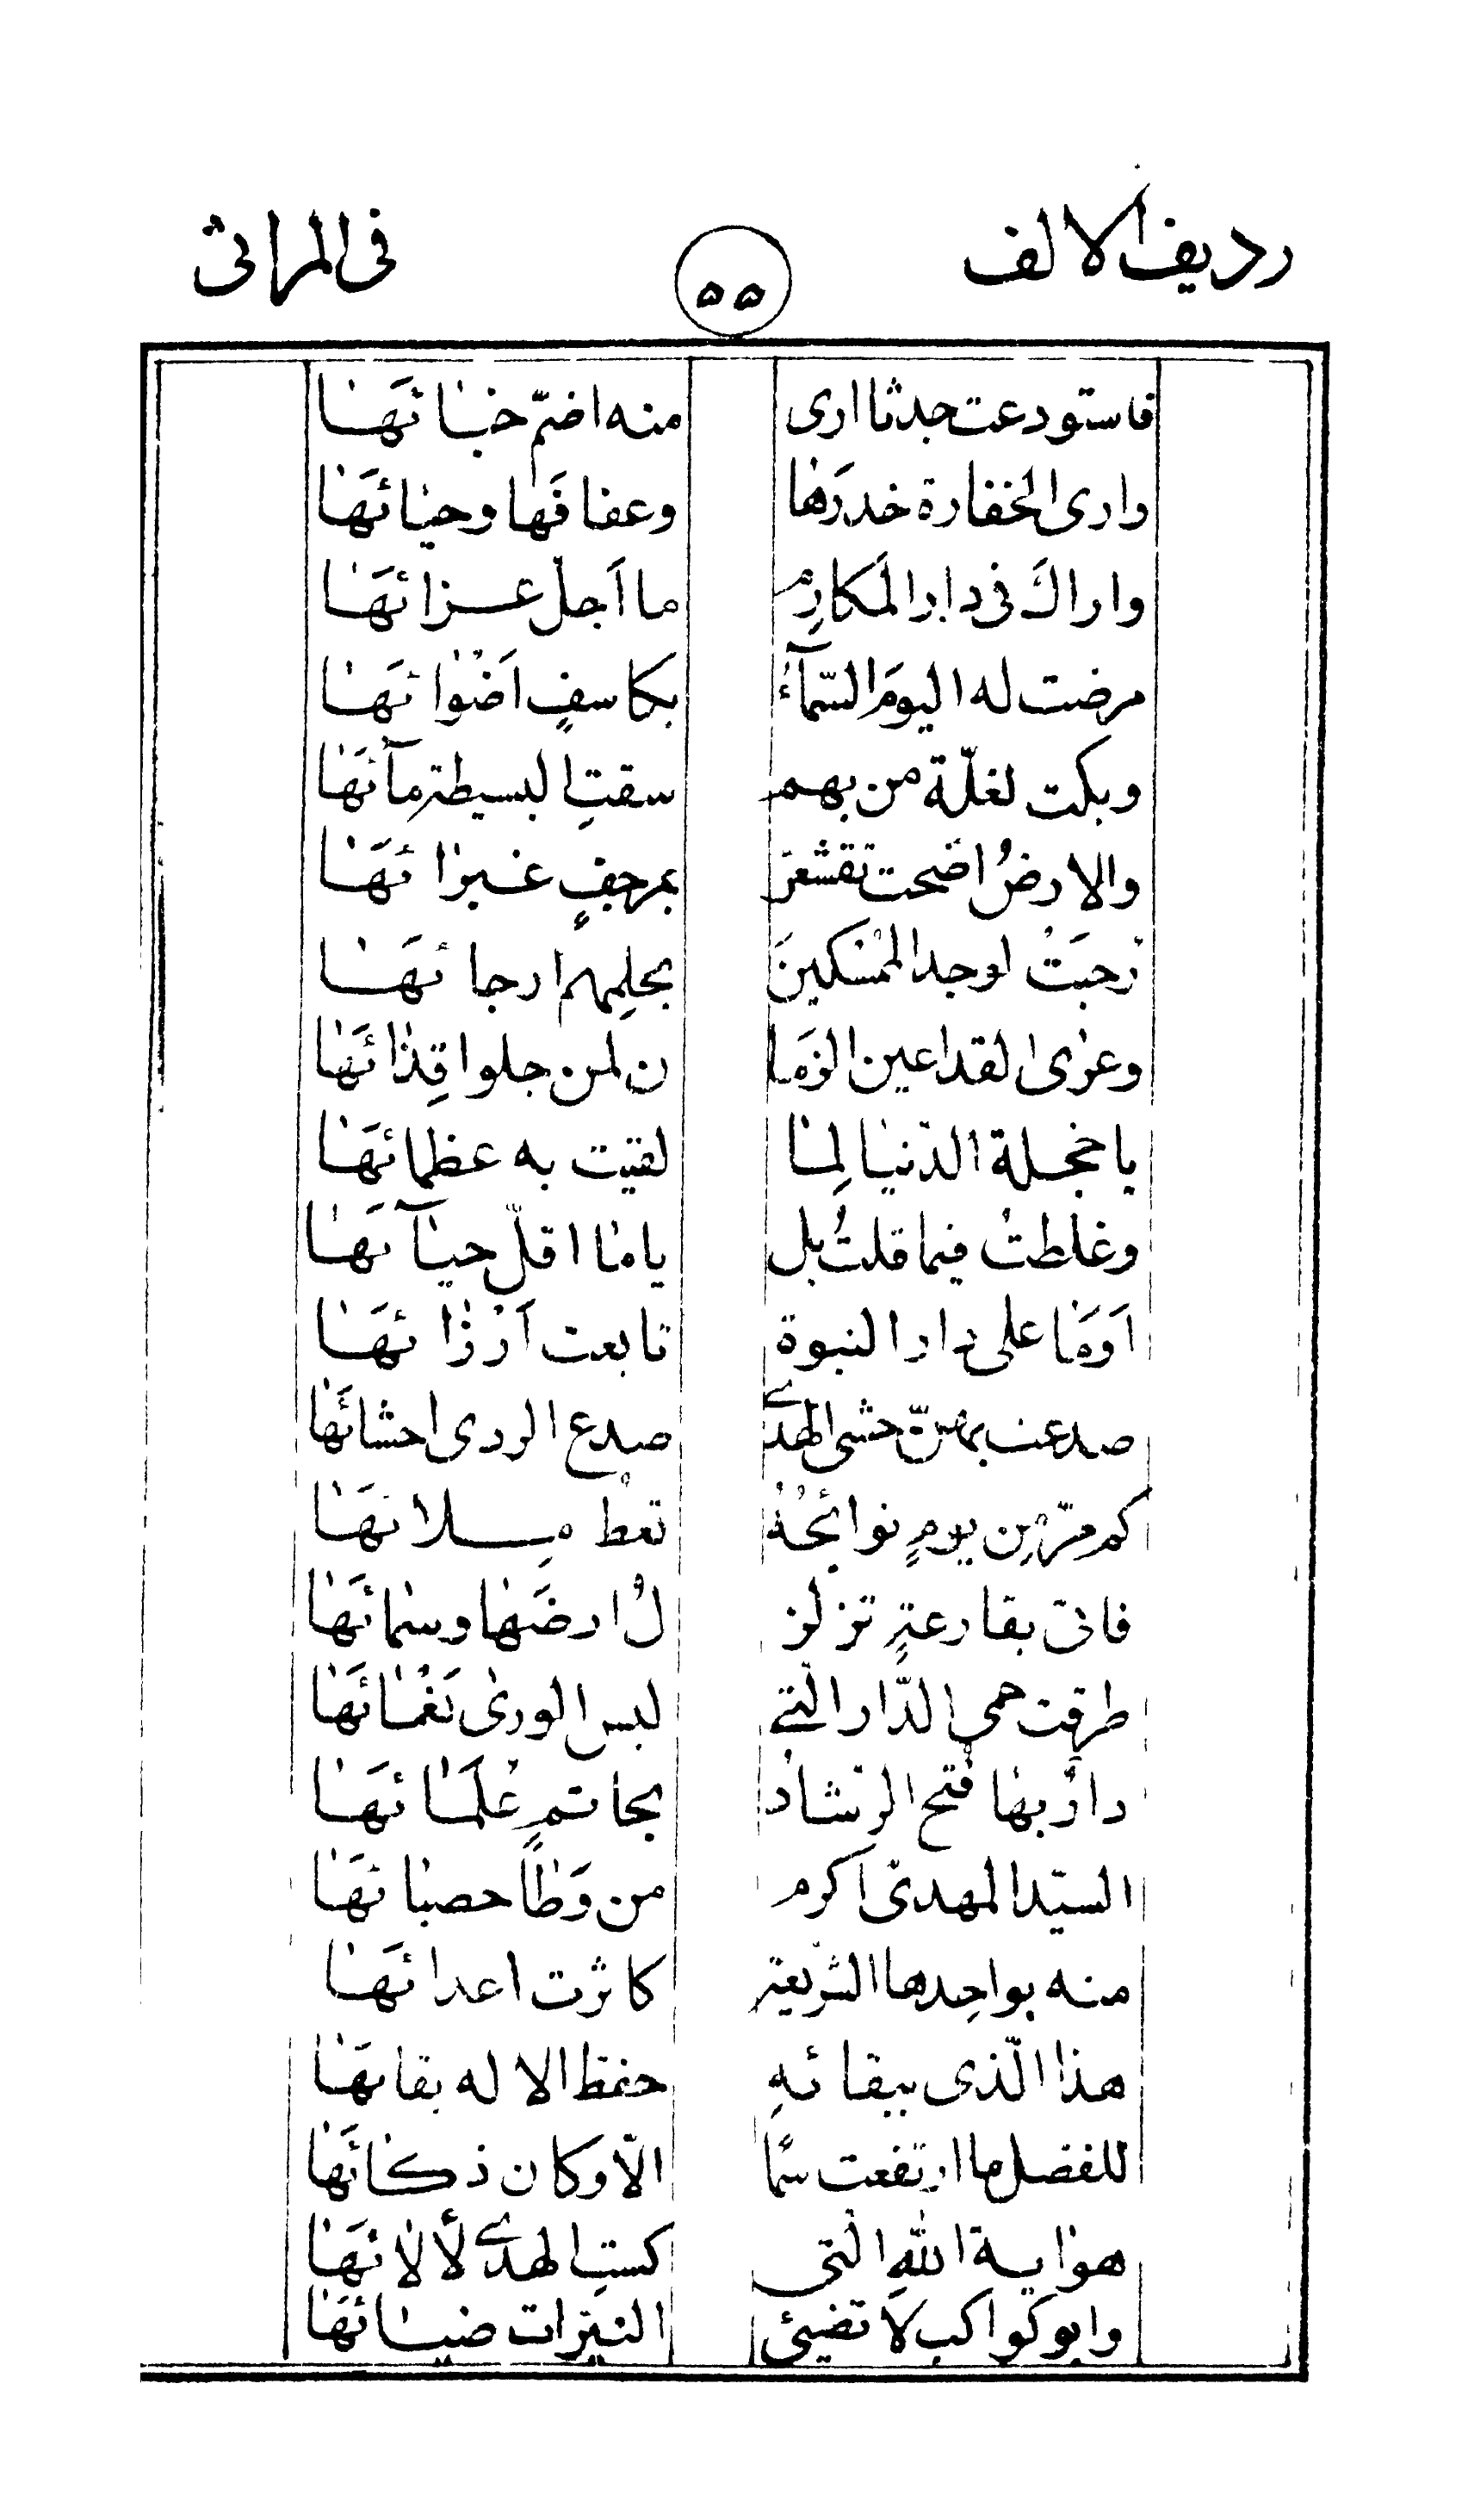 رديف الالف ٥٥ فى المراثى
فاستودعت جدثا ارى منه اضمّ خبائَهَا
وارى الخفارة خدرَها وعفافَها وحيائَهَا
واراكَ فى دار المَكارِم ما اَجلّ عزائَهَا
مرضت له اليومَ السّمآءُ بكاسفٍ اَضوائَهَا
وبكت لغلّة من بهم سقتِ البسيطة مآئَهَا
والارضُ اضحت تقشعرّ بمرجفٍ غبرائَهَا
رَحبَتْ لوجد المُمْسكينَ بحلمِهم ارجائَهَا
وعزى لقد اعين الزَما ن لمن جلوا قِذائَهَا
يا خجلة الدّنيا لِمنا لقيت به عظمائَهَا
وغلطتُ فيما قلتُ بل يا ما اقلّ حيآئَهَا
اَوَمَا على دار النبوة تابعت اَرْزائَهَا
صدعت بهنّ حشى الهدى صدع الردى احشائَهَا
كم مرّ مِن يومٍ نوائحُهُ تعطْ مِلائَهَا
فاتى بقارعةٍ تزلز لُ ارضَها وسمائَهَا
طرقت حمى الدّار الّتى لبس الورى نَعْمَائَهَا
دارٌ بها فتح الرشاد بخاتمٍ عُلَمَائَهَا
السيّد المهدىّ اكرم من وَطأ حصبائَهَا
منه بواحِدها الشّريعة كاثرت اعدائَهَا
هذا الّذى ببقائهِ حفظ الاله بقائَهَا
للفضل ما ارتفعت سَمًا الّا وكان ذكائَهَا
هو اية اللهِ الّتى كستِ الهدى لألائَهَا
وابو كواكب لا تضيئ النيّرات ضيائَهَا